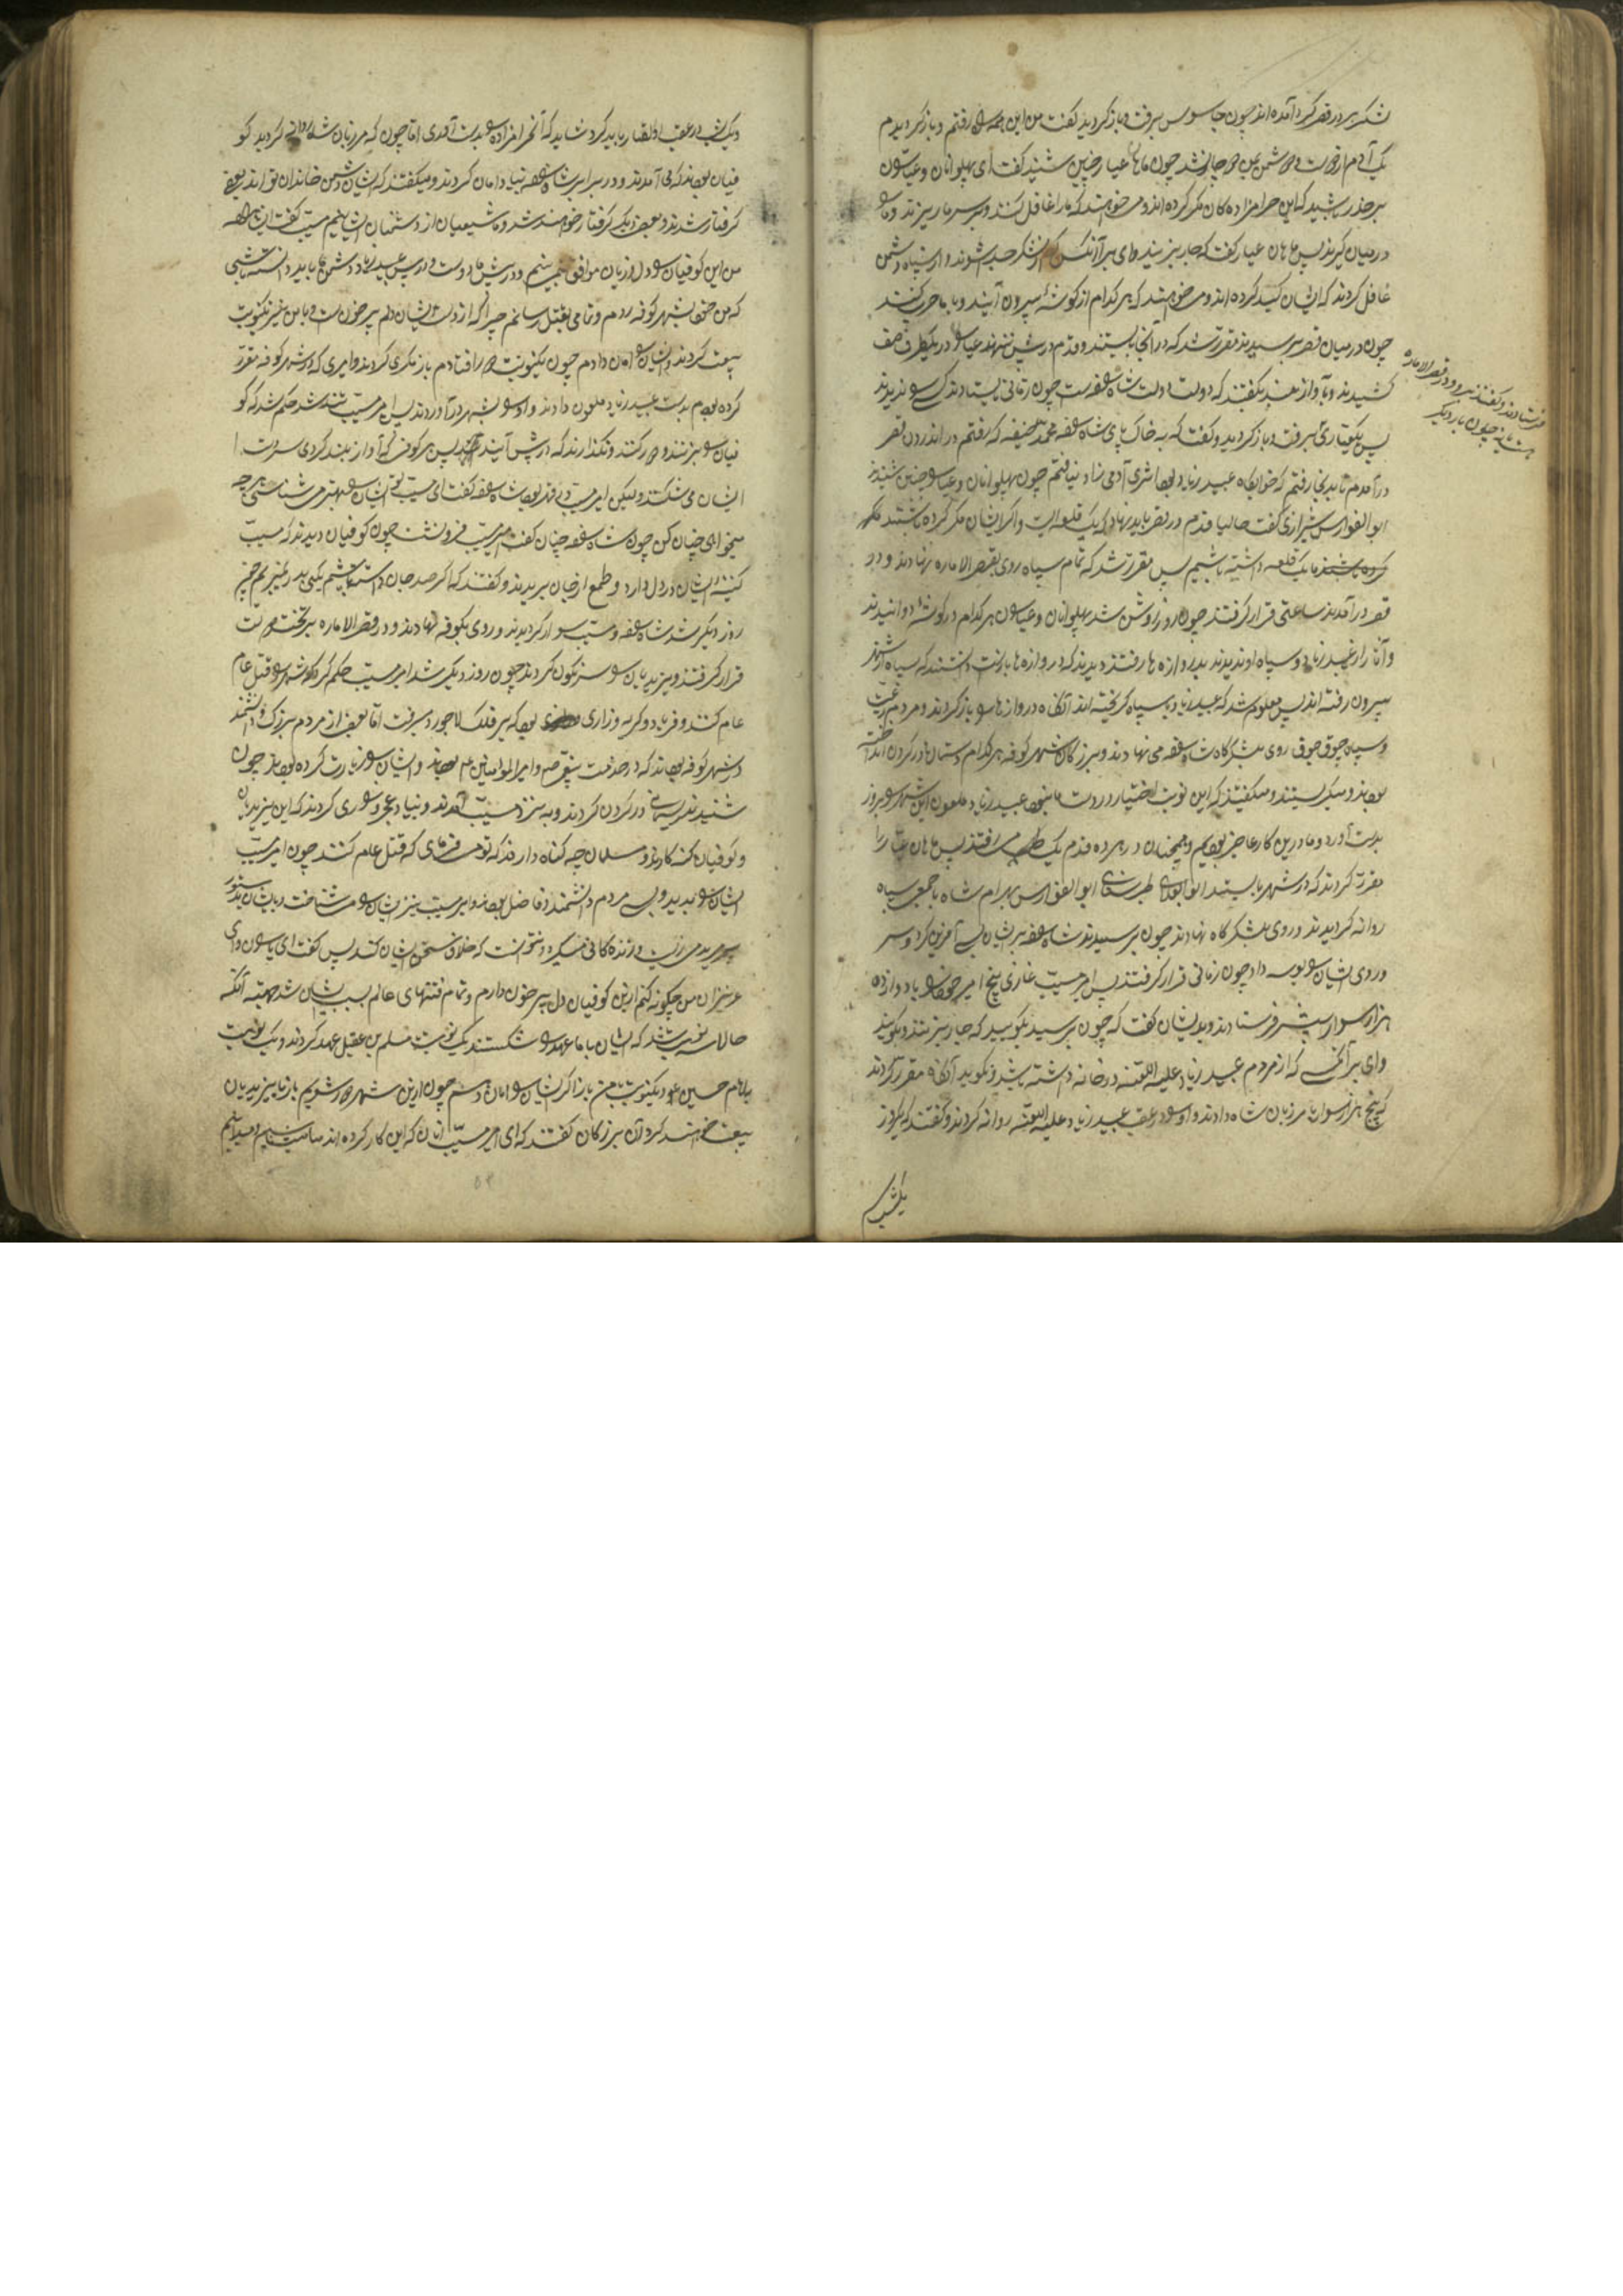 لشکر بر در قصر گرد آمده اند چون جاسوس برفت و باز گردید گفت من این همه رفتم و باز گردیدم
یک آدم از دوست و دشمن بمن جانشد چون ماهان عیار چنین شنید گفت ای پهلوانان و عیاران
بر حذر باشید که این حرامزاده کان مکر کرده اند و میخواهند که ما را غافل کنند و بر سر ما ریزند و ما
در میان گیرند پس ماهان عیار گفت که جار بزنید وای بر آنکس که از لشکر جدا شوند و از سپاه دشمن
غافل گردند که ایشان کید کرده اند و میخواهند که هر کدام از گوشهٔ بیرون آیند و با ما حرب کنند
چون در میان قصر رسیدند مقرر شد که در آنجا بایستند و قدم در پیش ننهند عیاران در یکطرف صف
کشیدند و بآواز بلند میگفتند که دولت دولت شاه است چون زمانی بایستادند کسی را ندیدند
پس یکعیاری برفت و باز گردید و گفت که به خاک پای شاه محمد حنیفه که رفتم در اندرون قصر
در آمدم تا بدانجا رفتم که خوابگاه عبید زیاد بود اثری آدمی زاد نیافتم چون پهلوانان و عیاران چنین شنیدند
ابو الفوارس شیرازی گفت حالیا قدم در قصر باید نهاد که یک قلعه ایست و اگر ایشان مکر کرده باشند
ما یک قلعه داشته باشیم پس مقرر شد که تمام سپاه روی بقصر الاماره نهادند و در
قصر در آمدند ساعتی قرار گرفتند چون روز روشن شد پهلوانان و عیاران هر کدام در گوشهٔ دوانیدند
و آثار از عبید زیاد و سپاه او ندیدند بدروازه ها رفتند دیدند که دروازه ها باز است دانستند که سپاه از شهر
بیرون رفته اند پس معلوم شد که عبید زیاد با سپاه گریخته اند آنگاه دروازها را باز کردند و مردم رعیت
و سپاه جوق جوق روی بلشکرگاه شاه می نهادند و بزرگان شهر کوفه هر کدام دستمال در گردن انداخته
بودند و میگریستند و میگفتند که این نوبت اختیار در دست ما نبود عبید زیاد ملعون این شهر را بزور
بدست آورد و ما درین کار عاجز بودیم و همچنان در هر ده قدم یک میرفتند پس ماهان عیار را
مقرر کردند که در شهر بایستد ابو طبرستانی ابو الفوارس بهرام شاه با جمیع سپاه
روانه گردیدند و روی بلشکرگاه نهادند چون برسیدند شاه بر ایشان بسی آفرین کرد و سر
و روی ایشان را بوسه داد چون زمانی قرار گرفتند پس امیر مسیب غازی پنج امیر با دوازده
هزار سوار پیشتر فرستادند و بدیشان گفت که چون برسید بگویید که جار بزنند و بگویند
وای بر آنکسی که از مردم عبید زیاد علیه اللعنه در خانه داشته باشد و نگوید آنگاه مقرر کردند
که پنج هزار سوار با مرزبان شاه دادند و او را در عقب عبید زیاد علیه اللعنه روانه کردند و گفتند که یکروز
یکشب
فرستادند و گفتند برو در قصر الاماره
چون بار دیگر
و یک شب در عقب او ایلغار باید کرد شاید که آنحرامزاده بدست آوری اما چون که مرزبان شاه روانه گردید کو
فیان بودند که می آمدند و در برابر شاه بنیاد امان کردند و میگفتند که ایشان دشمن خاندان تو اند بعضی
گرفتار شدند و بعضی دیگر گرفتار خواهند شد و ما شیعیان از دشمنان ایشانیم مسیب گفت ای شاه
من این کوفیان را دل و زبان موافق نمی بینم و در پیش ما دوست و در پیش عبید زیاد دشمن ما باید دانسته باشی
که من خود بشهر کوفه روم و تمامی بقتل رسانم چرا که از دست ایشان دلم پر خون است و با من نیز یکنوبت
بیعت کردند و ایشان را امان دادم چون یکنوبت راه افتادم باز مکری کردند و امیری که در شهر کوفه مقرر
کرده بودم بدست عبید زیاد ملعون دادند و او را بشهر در آوردند پس امیر مسیب تند شد حکم شد که کو
فیان را بزنند و دور کنند و نگذارند که در پیش آیند پس هر کوفی که آواز بلند کردی سر و دست
ایشان می شکستند ولیکن امیر مسیب در قهر بود شاه گفت ای مسیب تو ایشان را بهتر می شناسی هر چه
میخواهی چنان کن چون شاه چنان گفت امیر مسیب فرو نشست چون کوفیان دیدند که مسیب
کینهٔ ایشان در دل دارد و طمع از جان بریدند و گفتند که اگر صد جان داشته باشیم یکی بدر نمیبریم چون
روز دیگر شد شاه و مسیب سوار گردیدند و روی بکوفه نهادند و در قصر الاماره بر تخت دولت
قرار گرفتند و یزیدیان را سرنگون کردند چون روز دیگر شد امیر مسیب حکم کرد که شهر را قتل عام
عام کنند و فریاد و گریه و زاری بود که بر فلک لاجورد میرفت اما بعضی از مردم بزرگ و دانشمند
در شهر کوفه بودند که در خدمت پیغمبر و امیر المؤمنین بودند و ایشان را زیارت کرده بودند چون
شنیدند در گردن کردند و به نزد مسیب آمدند و بنیاد عجز و زاری کردند که این یزیدیان
و کوفیان گنه کارند و مسلمان چه گناه دارند که تو میفرمای که قتل عام کنند چون امیر مسیب
ایشان را بدید ولی مردم دانشمند و فاضل بودند و امیر مسیب نیز ایشان را میشناخت
نتوانست که خلاف سخن ایشان کند پس گفت ای یاران و ای
عزیزان من چگونه کنم ازین کوفیان دل پر خون دارم و تمام فتنهای عالم بسبب ایشان شد جهة آنکه
حالا سه نوبت شد که ایشان با ما عهد را شکستند یک نوبت با مسلم بن عقیل عهد کردند و یک نوبت
با امام حسین و یکنوبت با من باز اگر ایشان را امان دهم چون ازین شهر دور شویم باز با یزیدیان
بیعت خواهند کرد آن بزرگان گفتند که ای امیر مسیب آنان که این کار کرده اند